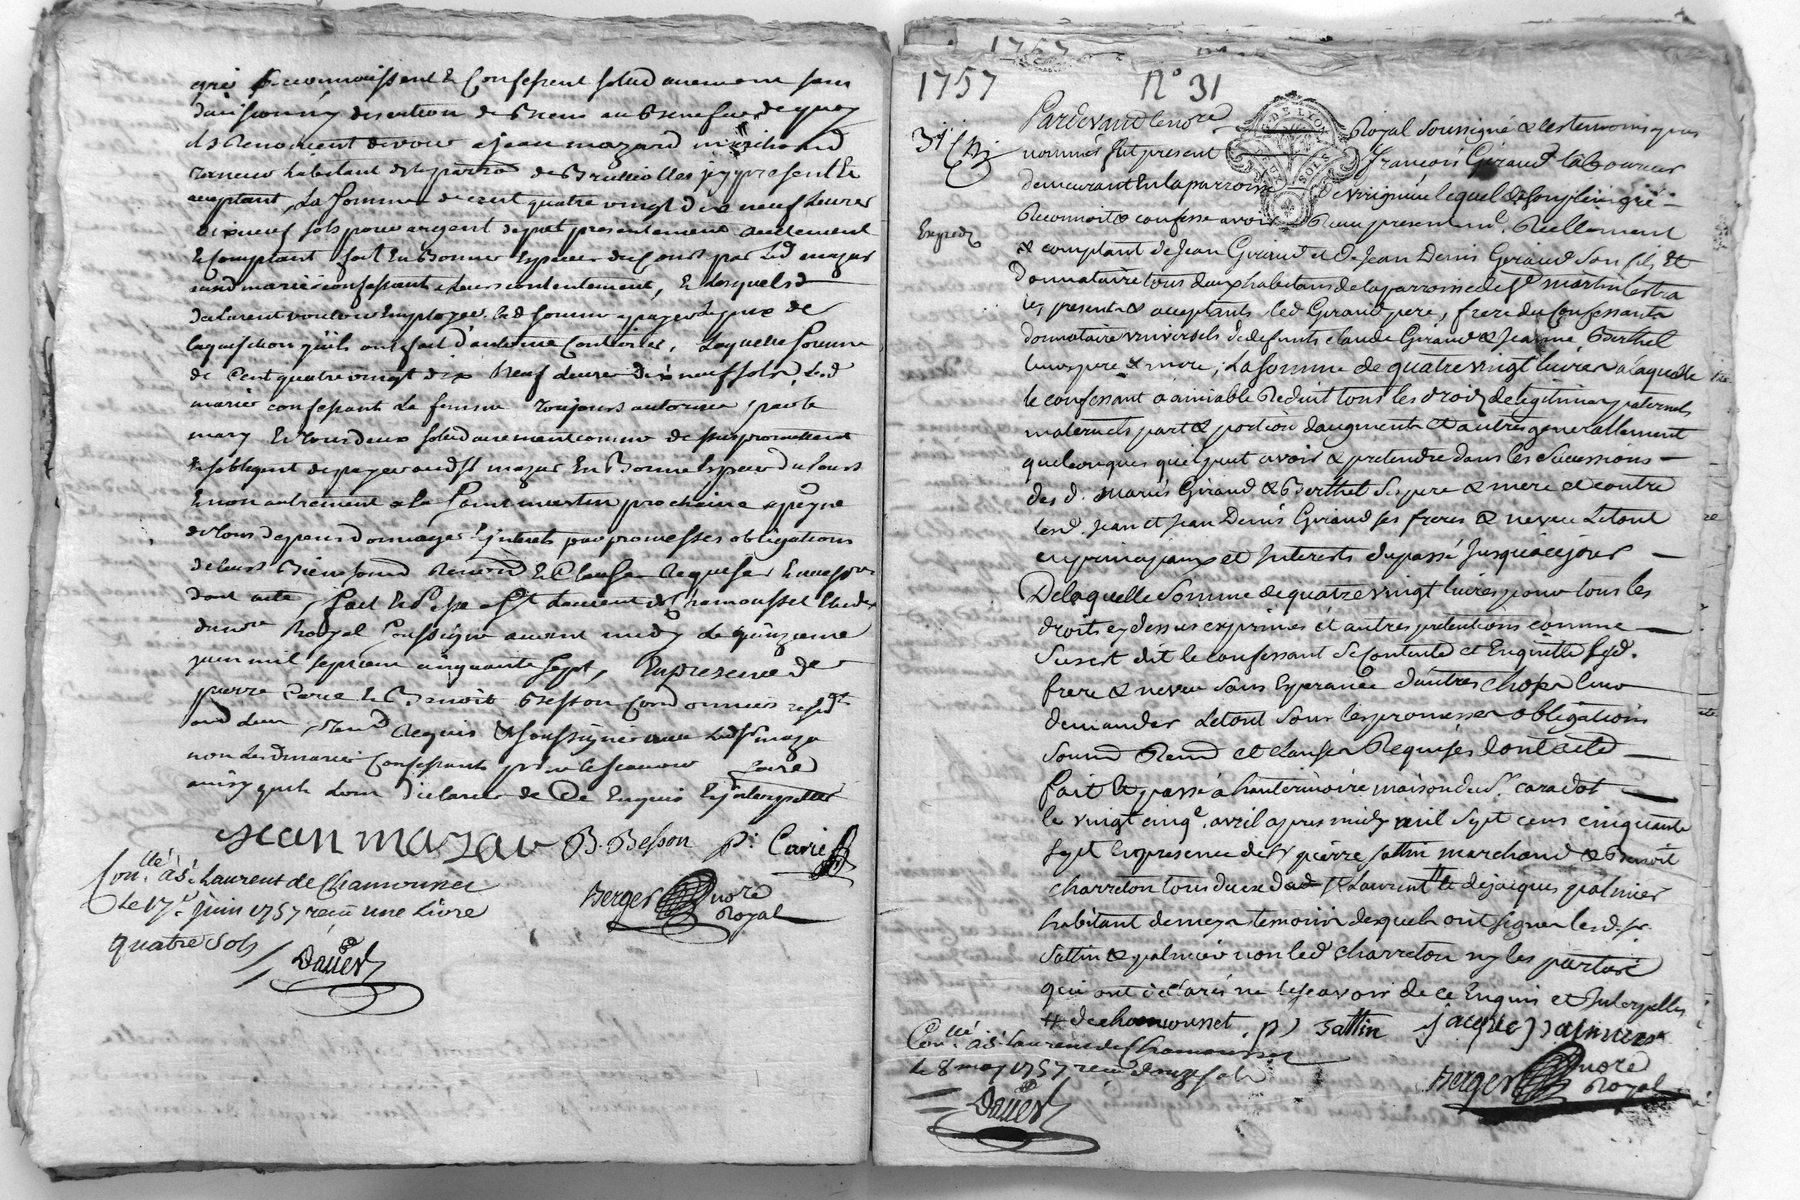 gré Reconnoissent & Confessent solidairement sans
division ny discution de Biens au Benefice de quoy
ils Renoncent devoir a jean mazard marchand
Taneur habitant de la parroisse de Brullioles icy present &
acceptant, La Somme de cent quatre vingt dix neuf Livres
dix neuf sols pour argent de pret presentement Reellement
& Comptant fait En Bonnes Especes du Cours par Led mazar
auxd mariés confessants a leur contentement, & Lesquels
declarent vouloir Employer lad somme a payer le prix de
laquisition quils ont fait d'antoine Laquelle somme
de Cent quatre vingt dix Neuf Livres dix neuf sols, Led
mariés confessants La femme Toujours autorisée par le
mary & Tous deux solidairement comme dessus promettent
& sobligent de payer aud st mazar En Bonnes Especes du Cours
& non autrement a la Saint martin prochaine a peyne
de tous depens dommages interets par promesses obligations
de leurs Biens soumd Renond & Clauses Requises
dont acte, fait & Passé a St Laurent de Chamousset Etude
du nore Royal Soussigné avant midy Le quinzieme
juin mil sept cent cinquante sept, En presence de
pierre Carie & Benoit Besson Cordonniers resid
aud Lieu, Requis & soussignés avec Led sr mazar
non Lesd mariés Confessants pour ne scavoir faire
ainsy quils L'ont declaré de Ce Enquis & interpellés
jean mazar B. Besson P. Carie
Berger nore
Royal
Conllé. à St. Laurent de Chamousset
Le 17e Juin 1757 reçu une Livre
quatre Sols
Dauer
1757
1757 N° 31
31
Expedé
Pardevant le nore Royal Soussigné & les temoins apres
nommés fut present François Giraud laboureur
demeurant En la parroisse de lequel de son plein gré
Reconnoit & confesse avoir Reçu presentemt. Reellement
& comptant de Jean Giraud et de Jean Denis Giraud son fils Et
donnataire tous deux habitans de la parroisse de St martin Lestra
icy present & acceptants led Giraud pere, frere du confessant
donnataire universels de defunts claude Giraud & Jeanne Berthet
leurs pere & mere, La somme de quatre vingt livres a laquelle
le confessant a amiable Reduit tous les droits de legitime paternels
maternels part & portion daugment Et autres generallement
quelconques quil peut avoir & pretendre dans les Sucessions
des d. mariés Giraud & Berthet ses pere & mere et contre
lesd. Jean et Jean Denis Giraud ses freres & neveu Letout
en principaux et Interets du passé Jusqua ce jour
De laquelle Somme de quatre vingt livres pour tous les
droits cy dessus exprimés et autres pretentions comme
Sus est dit le confessant Se Contente et En quitte lesd.
frere & neveu Sans Esperance d'autres choses leur
demander Letout Sous les promesses obligations
Soumd Renond et clauses Requises Dont acte
fait & passé à hauterivoire maison du sr. caradot
le vingt cinqe. avril apres midy mil Sept cens cinquante
Sept En presence de Sr pierre Sattin marchand & Benoit
charreton tous deux dud St Laurent # & de jacques palmier
habitant de meys temoins desquels ont signer les d. sr.
Sattin & palmier non led charreton ny les parties
qui ont déclarés ne le scavoir de ce Enquis et Interpelles
# de chamousset. P) Sattin jacque palmier
Berger nore
Royal
Conllé. à St. Laurent de Chamousset
le 8 may 1757 reçu douze sols
Dauer